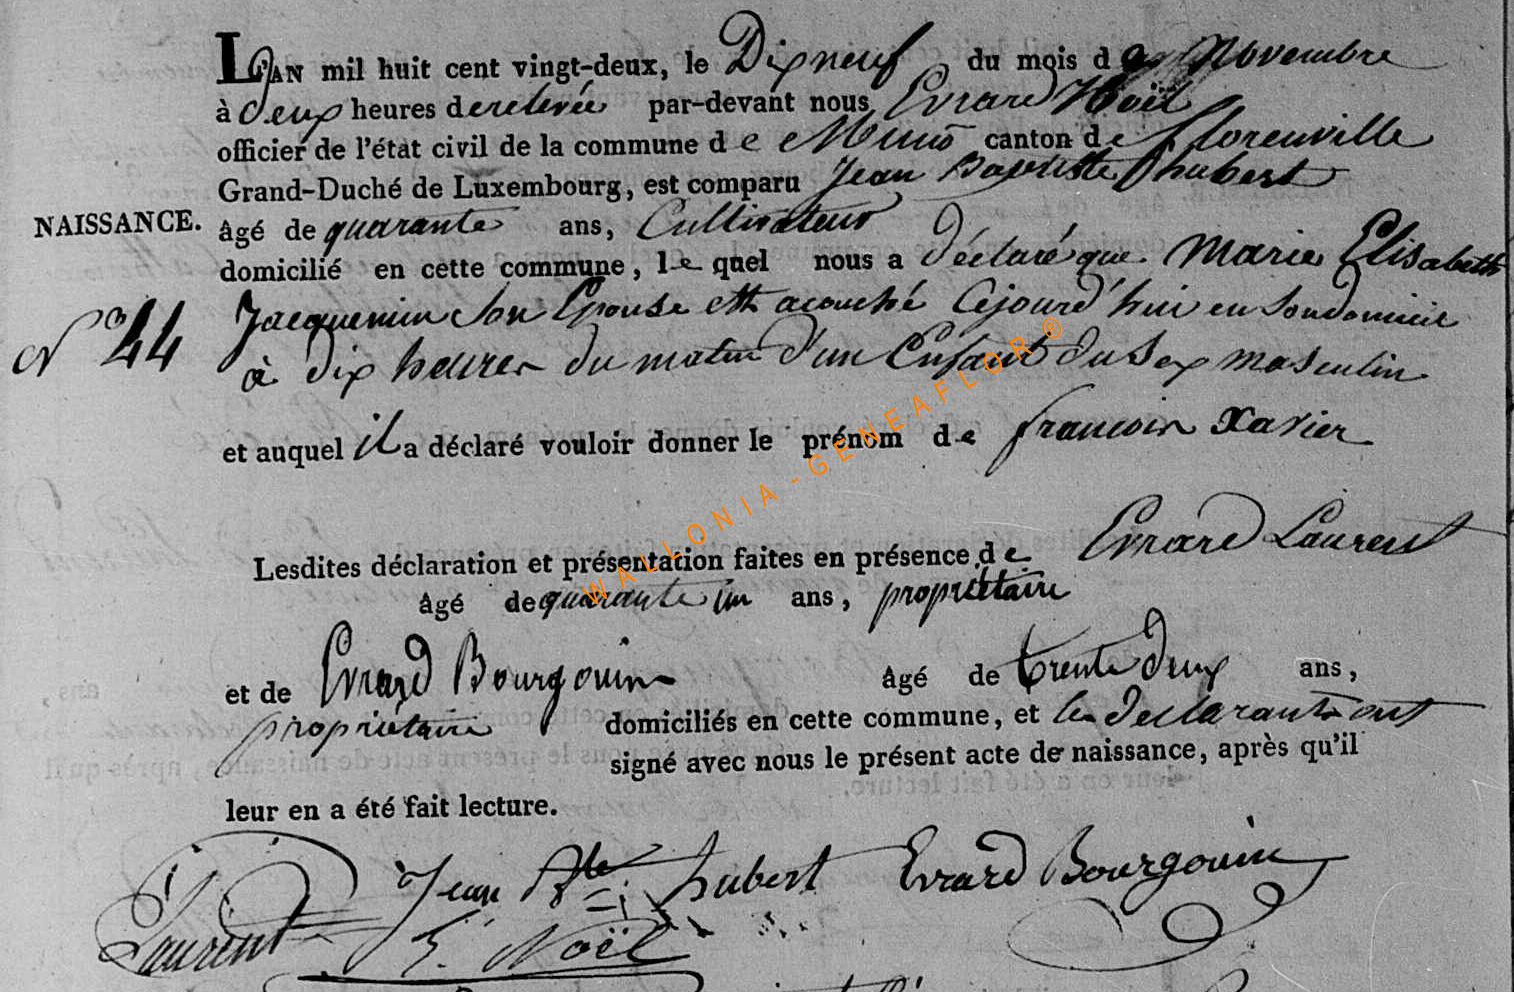 L'AN mil huit cent vingt-deux, le Dix neuf du mois de Novembre
à deux heures de relevée par-devant nous Evrard Noël
officier de l'état civil de la commune de Muno canton de florenville
Grand-Duché de Luxembourg, est comparu Jean Baptiste hubert
NAISSANCE. âgé de quarante ans, Cultivateur
domicilié en cette commune, le quel nous a déclaré que Marie Elisabeth
N° 44 Jacquemin Son Epouse est acouché Cejourd'hui en Sondomicile
à dix heures du matin d'un Enfant du Sex masculin
et auquel il a déclaré vouloir donner le prénom de francois Xavier
Lesdites déclaration et présentation faites en présence de Evrard Laurent
âgé de quarante un ans, propriétaire
et de Evrard Bourgouin âgé de trente deux ans,
propriétaire domiciliés en cette commune, et les declarants ont
signé avec nous le présent acte de naissance, après qu'il
leur en a été fait lecture.
Jean Bte hubert Evrard Bourgouin
Laurent E. Noël
WALLONIA-GENEAFLOR®